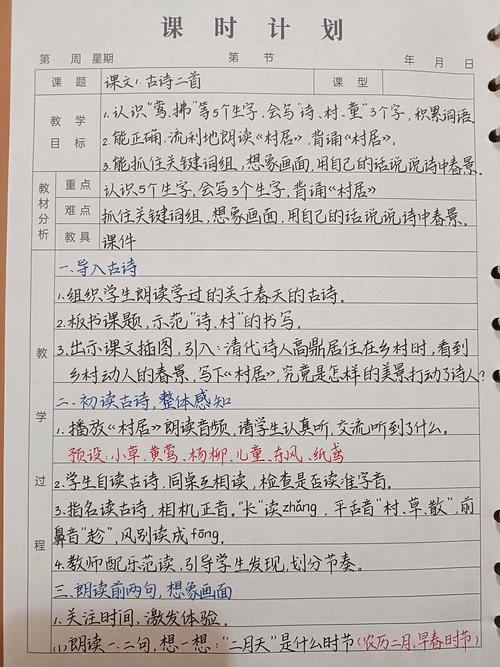 课时计划
第 周 星期 第 节 年 月 日
课题 课文1.古诗二首 课型
教学目标
1.认识“莺、拂”等5个生字,会写“诗、村、童”3个字,积累词语。
2.能正确、流利地朗读《村居》,背诵《村居》。
3.能抓住关键词组,想象画面,用自己的话说说诗中春景。
教材分析
重点 认识5个生字,会写3个生字,背诵《村居》
难点 抓住关键词组,想象画面,用自己的话说说诗中春景。
教具 课件
教学过程
一、导入古诗
1.组织学生朗读学过的关于春天的古诗。
2.板书课题,示范“诗、村”的书写。
3.出示课文插图,引入:清代诗人高鼎居住在乡村时,看到
乡村动人的春景,写下《村居》,究竟是怎样的美景打动了诗人?
二、初读古诗,整体感知
1.播放《村居》朗读音频,请学生认真听,交流听到了什么。
预设:小草、黄莺、杨柳、儿童、东风、纸鸢
2.学生自读古诗,同桌互相读,检查是否读准字音。
3.指名读古诗,相机正音。“长”读zhǎng,平舌音“村、草、散”,前
鼻音“趁”,风别读成fōng。
4.教师配乐范读,引导学生发现,划分节奏。
三、朗读前两句,想象画面
1.关注时间,激发体验。
(1)朗读一、二句,想一想:“二月天”是什么时节(农历二月,早春时节)